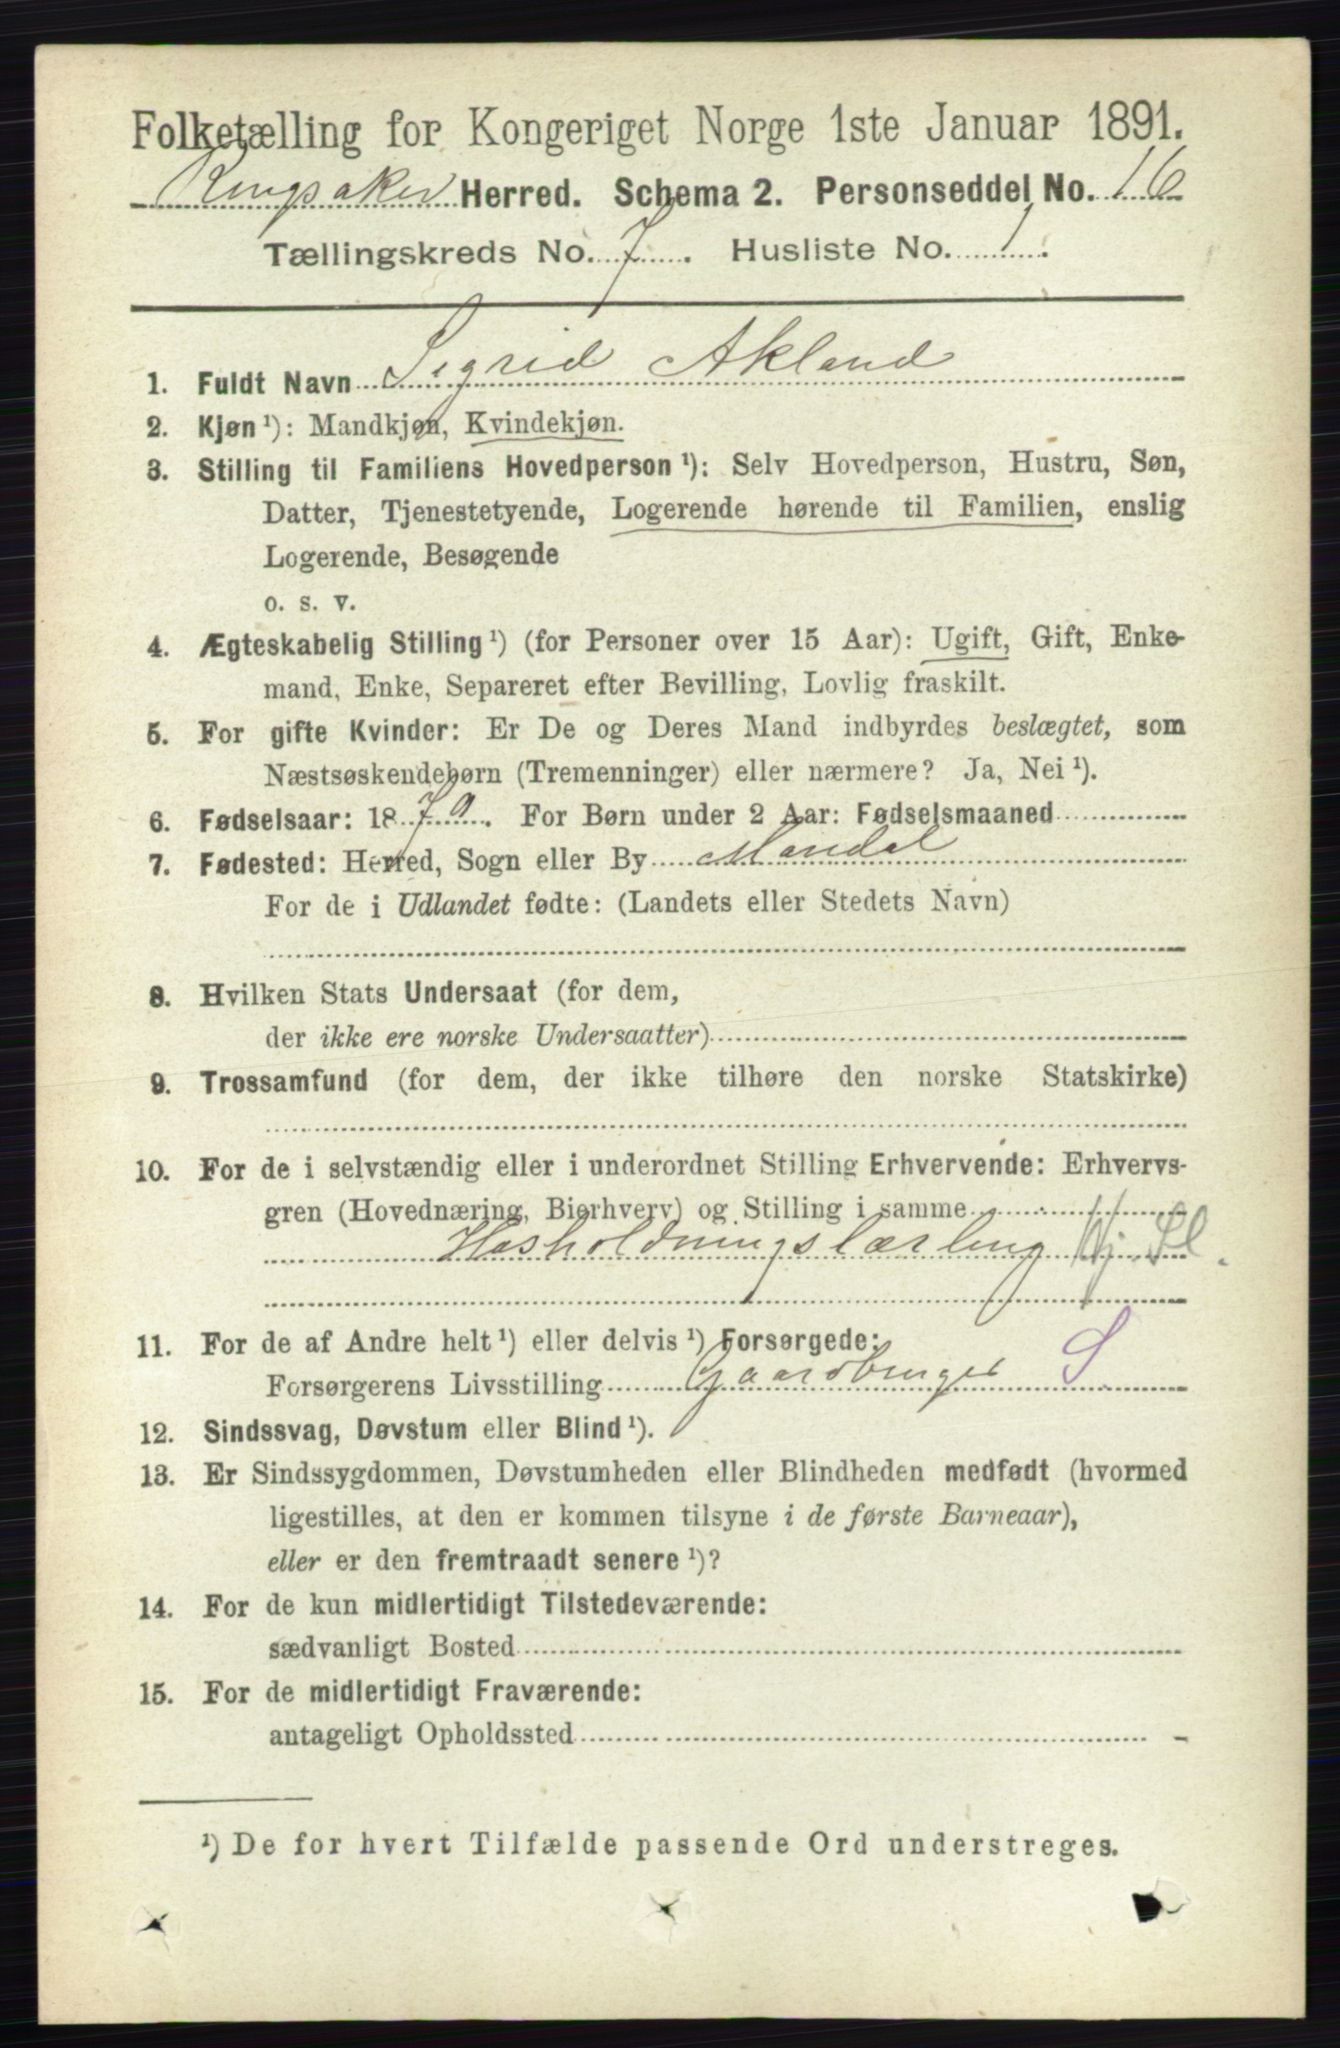 Folketælling for Kongeriget Norge 1ste Januar 1891.
Ringsaker Herred. Schema 2. Personseddel No. 16
Tællingskreds No. 7. Husliste No. 1.
1. Fuldt Navn Sigrid Akland
2. Kjøn ¹): Mandkjøn, Kvindekjøn.
3. Stilling til Familiens Hovedperson ¹): Selv Hovedperson, Hustru, Søn,
Datter, Tjenestetyende, Logerende hørende til Familien, enslig
Logerende, Besøgende
o. s. v.
4. Ægteskabelig Stilling ¹) (for Personer over 15 Aar): Ugift, Gift, Enke-
mand, Enke, Separeret efter Bevilling, Lovlig fraskilt.
5. For gifte Kvinder: Er De og Deres Mand indbyrdes beslægtet, som
Næstsøskendebørn (Tremenninger) eller nærmere? Ja, Nei ¹).
6. Fødselsaar: 1879. For Børn under 2 Aar: Fødselsmaaned
7. Fødested: Herred, Sogn eller By Mandal
For de i Udlandet fødte: (Landets eller Stedets Navn)
8. Hvilken Stats Undersaat (for dem,
der ikke ere norske Undersaatter)
9. Trossamfund (for dem, der ikke tilhøre den norske Statskirke)
10. For de i selvstændig eller i underordnet Stilling Erhvervende: Erhvervs-
gren (Hovednæring, Bierhverv) og Stilling i samme
Husholdningslærling Hj. Sl.
11. For de af Andre helt ¹) eller delvis ¹) Forsørgede:
Forsørgerens Livsstilling Gaardbruger S
12. Sindssvag, Døvstum eller Blind ¹).
13. Er Sindssygdommen, Døvstumheden eller Blindheden medfødt (hvormed
ligestilles, at den er kommen tilsyne i de første Barneaar),
eller er den fremtraadt senere ¹)?
14. For de kun midlertidigt Tilstedeværende:
sædvanligt Bosted
15. For de midlertidigt Fraværende:
antageligt Opholdssted
¹) De for hvert Tilfælde passende Ord understreges.